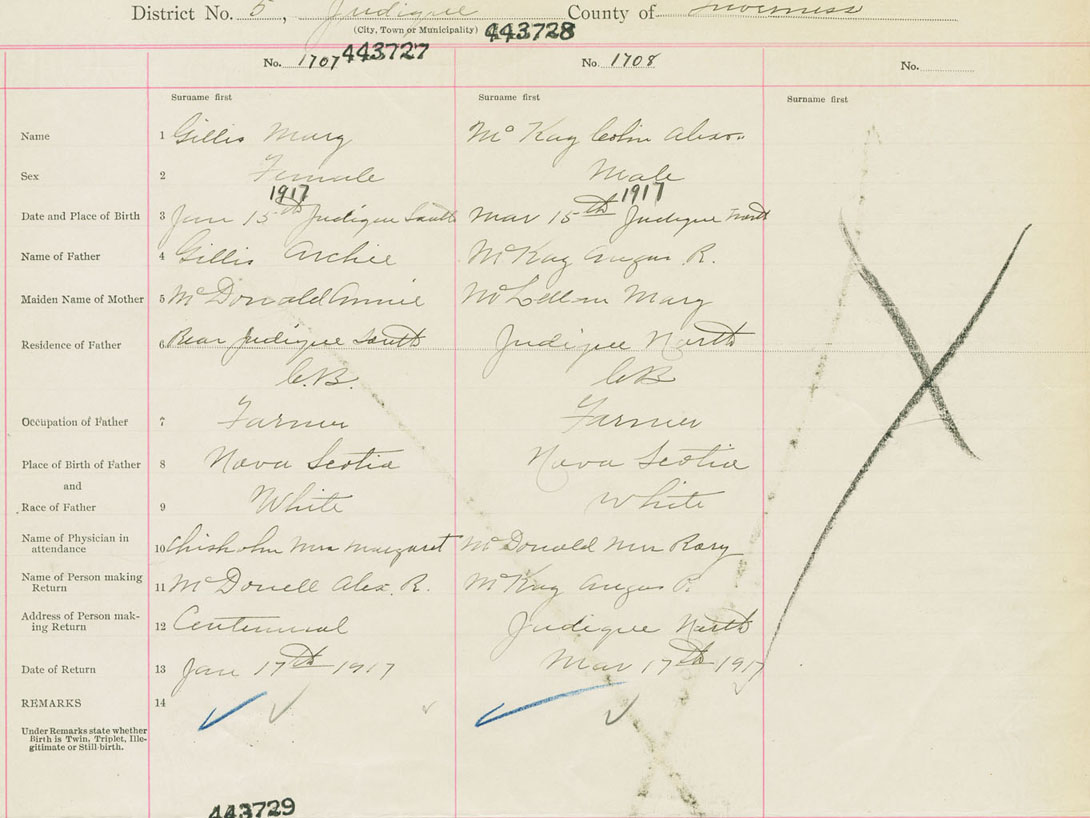 District No. 5, Judique County of Inverness
(City, Town or Municipality) 443728
No. 1707 443727 No. 1708 No.
Surname first Surname first Surname first
Name 1 Gillis Mary Mc Kay Colin Alexr.
Sex 2 Female Male
1917 1917
Date and Place of Birth 3 Jan 15th Judique South Mar 15th Judique North
Name of Father 4 Gillis Archie McKay Angus R.
Maiden Name of Mother 5 McDonald Annie McLellan Mary
Residence of Father 6 Rear Judique South Judique North
C.B. C B
Occupation of Father 7 Farmer Farmer
Place of Birth of Father 8 Nova Scotia Nova Scotia
and
Race of Father 9 White White
Name of Physician in
attendance 10 Chisholm Mrs Margaret McDonald Mrs Rory
Name of Person making
Return 11 McDonell Alex. R. McKay Angus R.
Address of Person mak-
ing Return 12 Centennial Judique North
Date of Return 13 Jan 17th 1917 Mar 17th 1917
REMARKS 14
Under Remarks state whether
Birth is Twin, Triplet, Ille-
gitimate or Still-birth.
443729